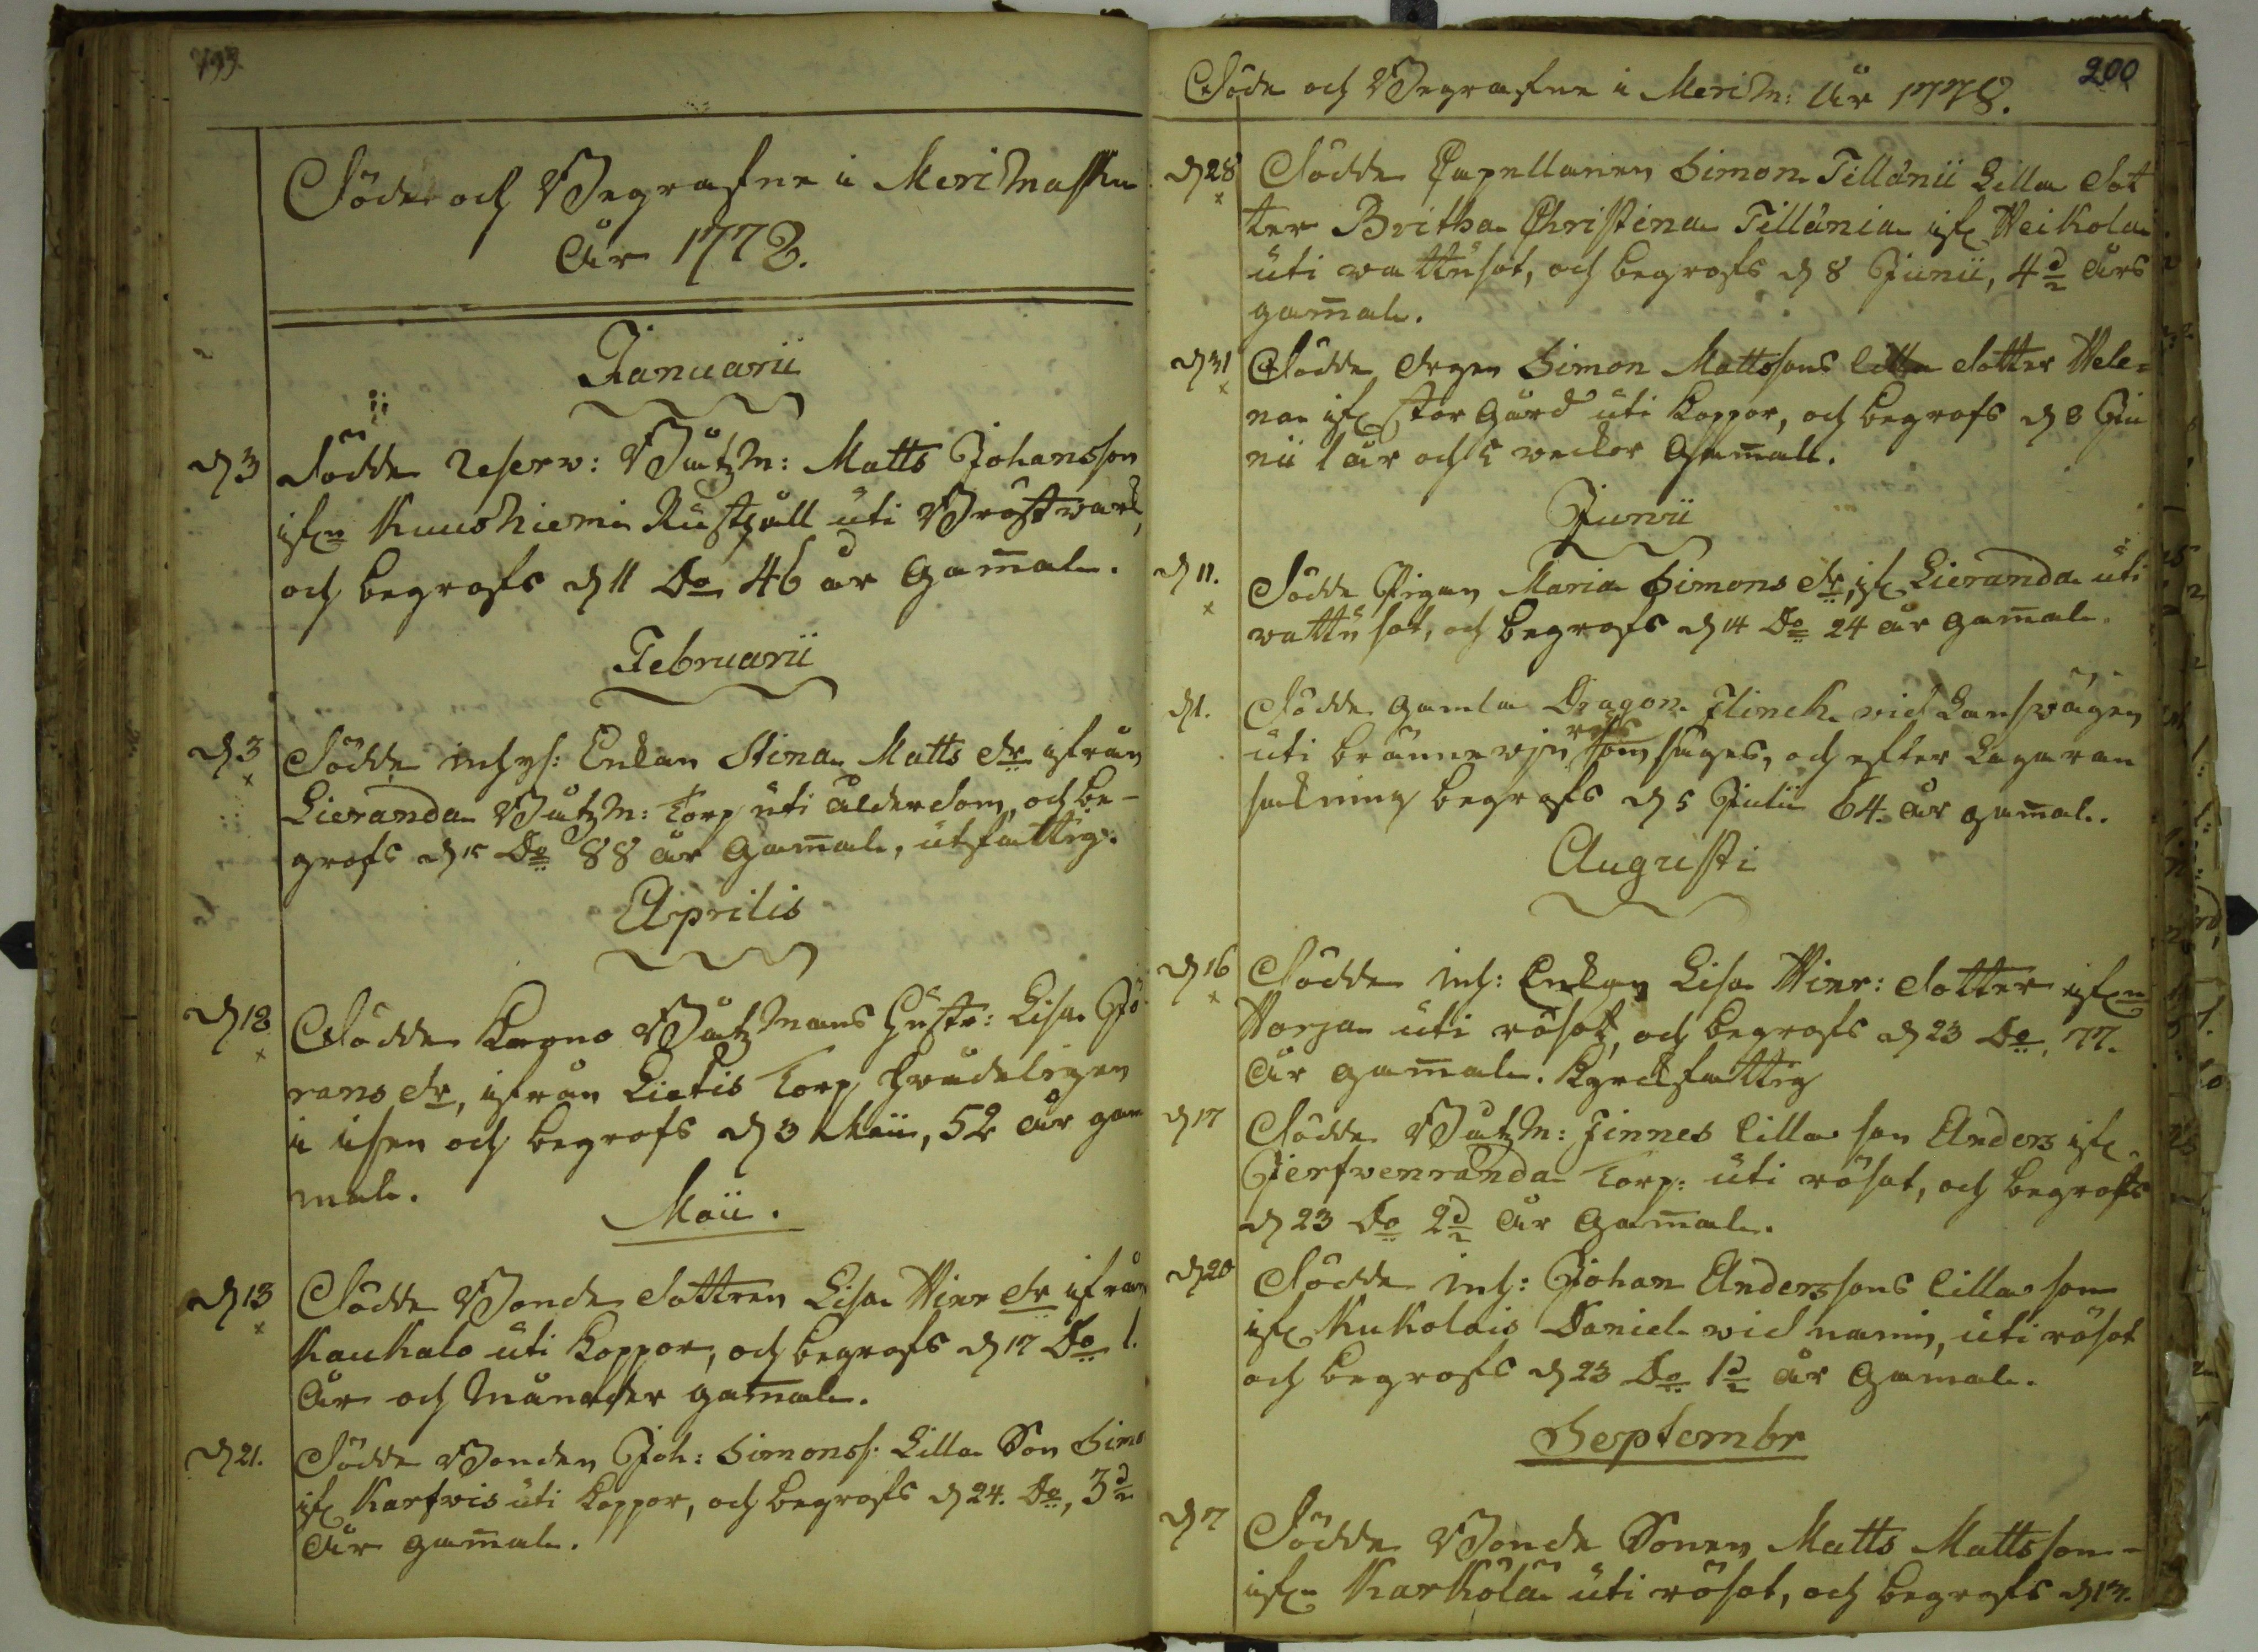 199
Döde och Begrafne i Merimasku
År 1778.
Januarii
d 3 Dödde reserv: Båtzm: Matts Johansson
ifrn Kuushiemi Rusthåll uti Bröstwärk,
och begrofs d 11 Do 46 år gammal.
Februarii
d 3 Dödde inhys: Enkan Stina Matts dr ifrån
x
Lieranda Båtzm: Torp uti ålderdom, och be-
grofs d 15 Do 88 år gammal, utfattig.
Aprilis
d 18 Dödde Krono Båtzmans Hustr: Lisa Jö
x
rans dr, ifrån Lietis Torp
i isen och begrofs d 3 Maii, 52 år gam
mal.
Maii.
d 13 Dödde Bonde dottren Lisa Hinr dr ifrån
x
Kaukalo uti Koppor, och begrofs d 17 Do 1.
År och Månader gammal.
d 21. Dödde Bonden Joh: Simonss: Lilla Son Simo
ifr Karfvis uti Koppor, och begrofs d 24. Do, 3½
År gammal.
200
Döde och Begrafne i Merim: År 1778.
d 28 Dödde Capellanen Simon Tillänii Lilla dot
x
ter Britha Christina Tillänia ifr Heikola
uti wattusot, och begrofs d 8 Junii, 4½ Års
gammal.
d 31 Dödde Drgen Simon Mattssons lilla dotter Hele-
x
na ifr Storgård uti Koppor, och begrofs d 8 Ju
nii 1 år och 5 weckor Gammal.
Junii
d 11. Dödde Pigan Maria Simons dr, ifr Lieranda uti
x
wattusot, och begrofs d 14 Do 24 år gammal.
d 1. Dödde gamla Dragon Flinck wid Landswägen
uti brännewin som säges, och efter Laga ran
sakning begrofs d 5 Julii 64. år gammal.
Augusti
d 16 Dödde inh: Enkan Lisa Hinr: dotter ifrn
x
Norja uti rösot, och begrofs d 23 Do, 77.
År gammal. Kyrckfattig
d 17 Dödde Båtzm: Finnes lilla son Anders ifr
Jerfwenranda Torp: uti rösot, och begrofs
d 23 Do 2½ År Gammal.
d 20 Dödde inh: Johan Anderssons lilla son
ifr Kukolais Daniel wid namn, uti rösot
och begrofs d 23 Do 1½ år Gamal.
Septembr
d 7 Dödde Bonde Sonen Matts Mattsson-
ifrn Karkola uti rösot, och begrofs d 13.